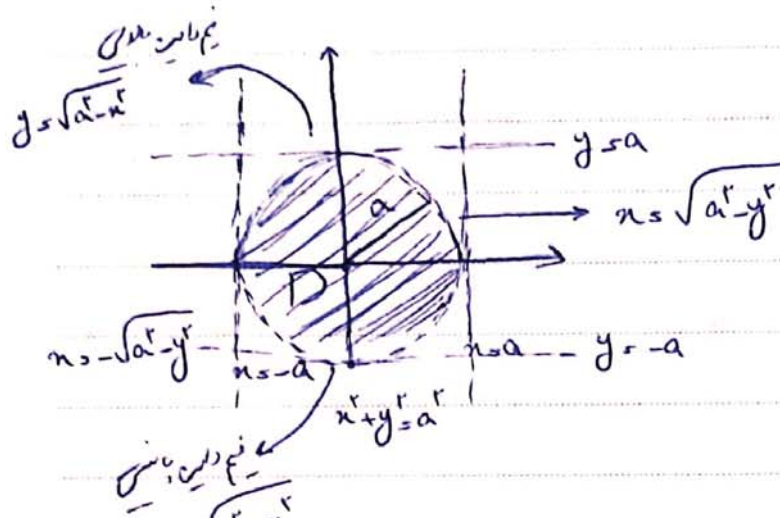 نیم دایره بالایی
y = √a²-x²
y = a
a
x = √a²-y²
D
x = -√a²-y²
x = -a
x = a
y = -a
x²+y² = a²
نیم دایره پایینی